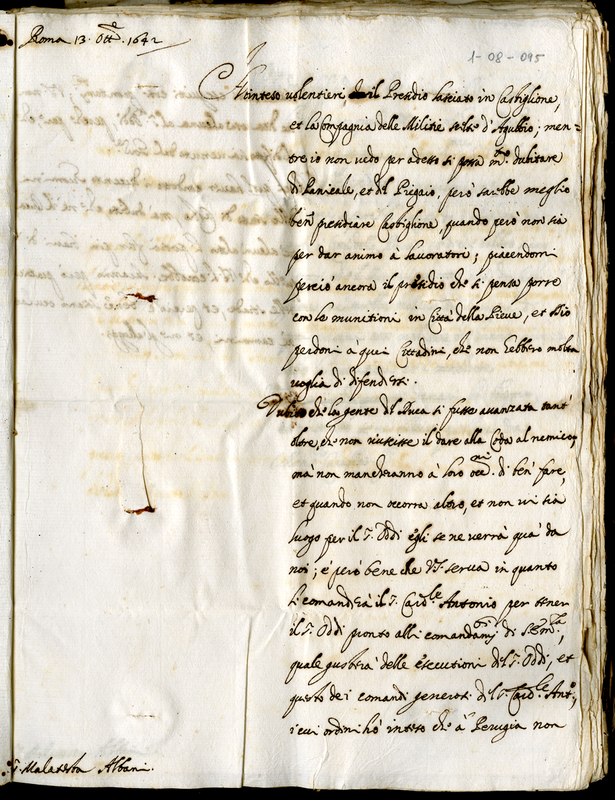 Roma 13. Ott.e 1642
1-08-095
Hò inteso volentieri il Presidio lasciato in Castiglione,
et la Compagnia delle Militie scelte d'Agubbio; men=
tre io non vedo per adesso si possa m.to dubitare
di Panicale, et del Piegaio, però sarebbe meglio
ben presidiare Castiglione, quando però non sia
per dar animo a lavoratori; piacendomi
perciò ancora il presidio che si pensa porre
con le munitioni in Città della Pieve, et Iddio
perdoni à quei Cittadini, che non hebbero molta
voglia di difendersi.
che la gente del Duca si fusse avanzata tant'
oltre, che non riuscisse il dare alla Coda al nemico,
mà non mancheranno à loro occ.ni di ben fare,
et quando non occorra altro, et non vi sia
luogo per il S. Oddi egli se ne verrà quà da
noi; e però bene che V.S. serva in quanto
li comanderà il S. Card.le Antonio per tener
il S. Oddi pronto alli comandam.ti di S. Em.za,
quale gusterà delle esecutioni del S. Oddi, et
questo dei comandi generosi del S. Card.le Ant.o,
i cui ordini hò inteso che à Perugia non
S. Malatesta Albani.